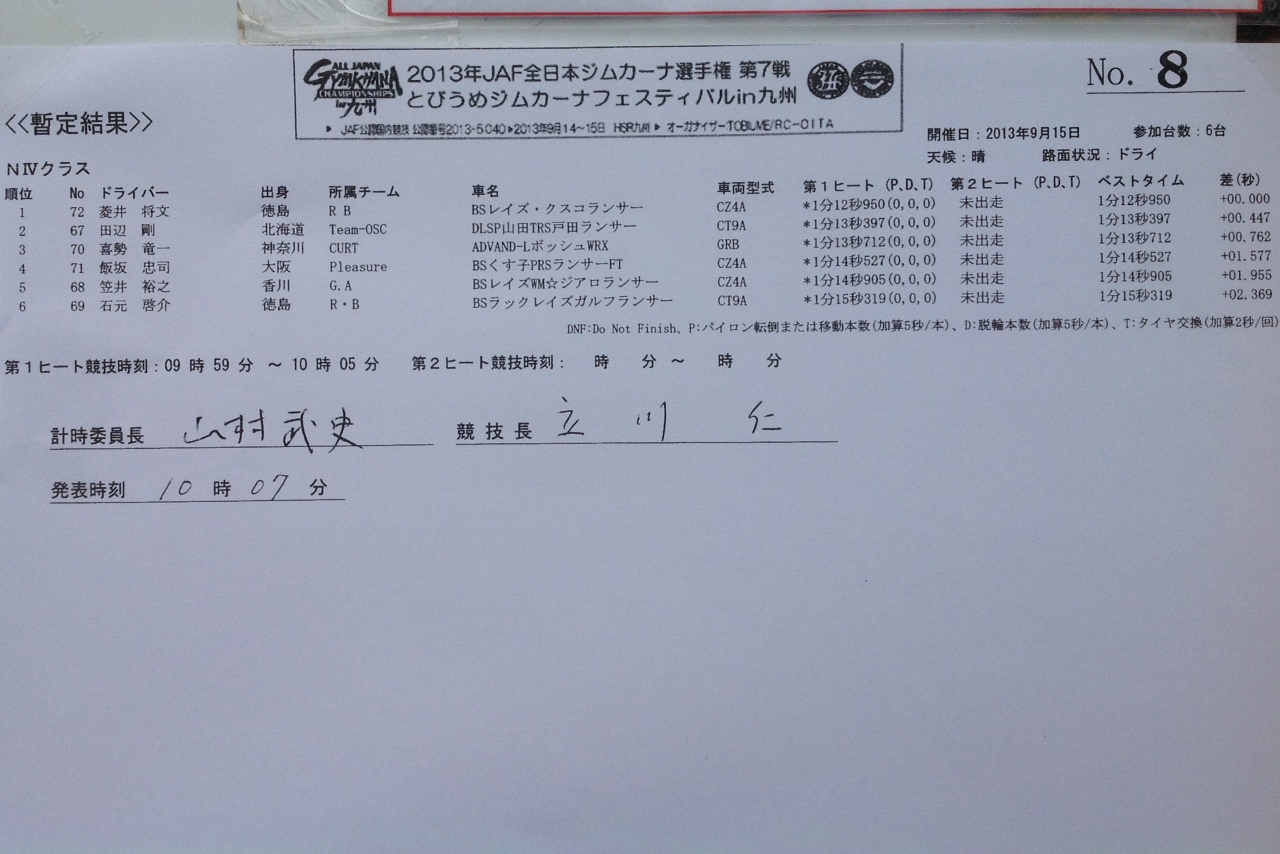 ALL JAPAN
GYMKHANA
CHAMPIONSHIPS
in 九州
2013年JAF全日本ジムカーナ選手権 第7戦
とびうめジムカーナフェスティバルin九州
▶ JAF公認国内競技 公認番号2013-5040▶2013年9月14~15日 HSR九州▶ オーガナイザーTOBIUME/RC-OITA
No. 8
<<暫定結果>>
開催日:2013年9月15日 参加台数:6台
天候:晴 路面状況:ドライ
NⅣクラス
順位 No ドライバー 出身 所属チーム 車名 車両型式 第1ヒート (P、D、T) 第2ヒート (P、D、T) ベストタイム 差(秒)
1 72 菱井 将文 徳島 R B BSレイズ・クスコランサー CZ4A *1分12秒950(0,0,0) 未出走 1分12秒950 +00.000
2 67 田辺 剛 北海道 Team-OSC DLSP山田TRS戸田ランサー CT9A *1分13秒397(0,0,0) 未出走 1分13秒397 +00.447
3 70 喜勢 竜一 神奈川 CURT ADVAND-LボッシュWRX GRB *1分13秒712(0,0,0) 未出走 1分13秒712 +00.762
4 71 飯坂 忠司 大阪 Pleasure BSくす子PRSランサーFT CZ4A *1分14秒527(0,0,0) 未出走 1分14秒527 +01.577
5 68 笠井 裕之 香川 G.A BSレイズWM☆ジアロランサー CZ4A *1分14秒905(0,0,0) 未出走 1分14秒905 +01.955
6 69 石元 啓介 徳島 R・B BSラックレイズガルフランサー CT9A *1分15秒319(0,0,0) 未出走 1分15秒319 +02.369
DNF:Do Not Finish、P:パイロン転倒または移動本数(加算5秒/本)、D:脱輪本数(加算5秒/本)、T:タイヤ交換(加算2秒/回)
第1ヒート競技時刻:09 時 59 分 ~ 10 時 05 分 第2ヒート競技時刻: 時 分 ~ 時 分
計時委員長 山村武史 競技長 立川 仁
発表時刻 10 時 07 分